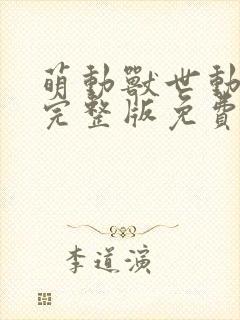 萌動獸世動
完整版免費
李道演